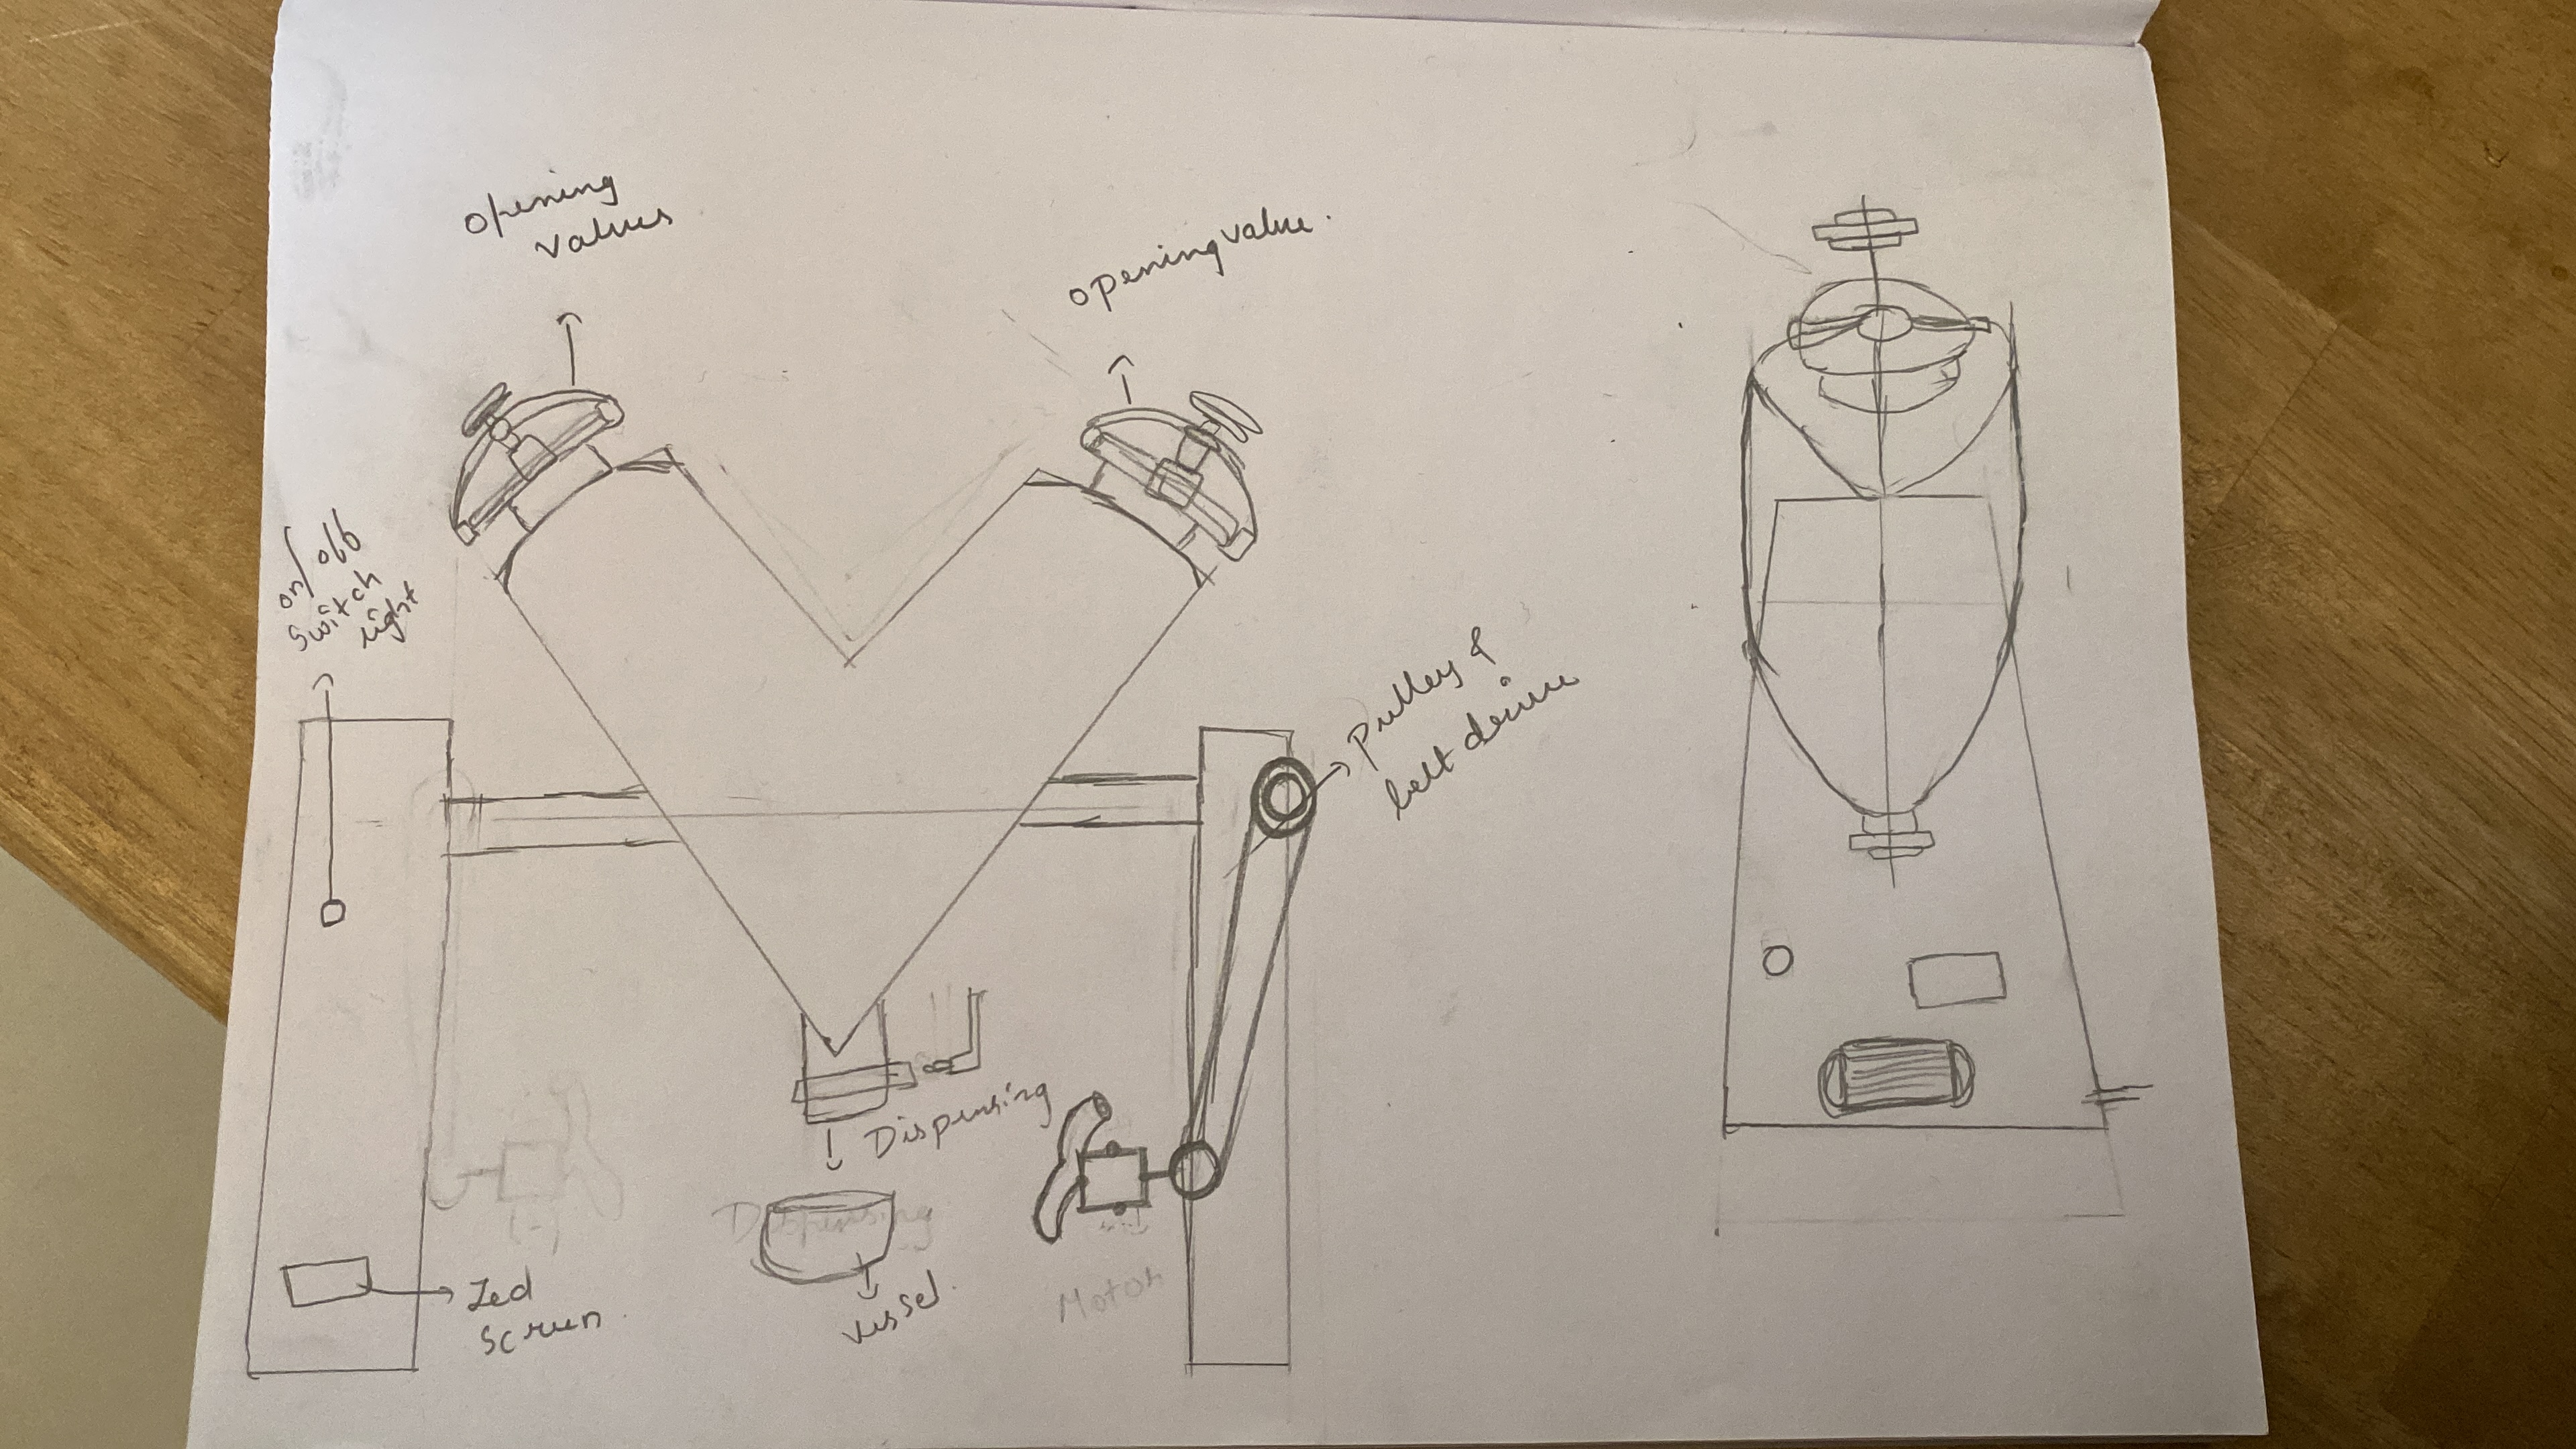 opening
values
opening value.
on/off
switch
right
pulley &
belt drive
Dispensing
Dispensing
vessel.
Motor
Led
screen